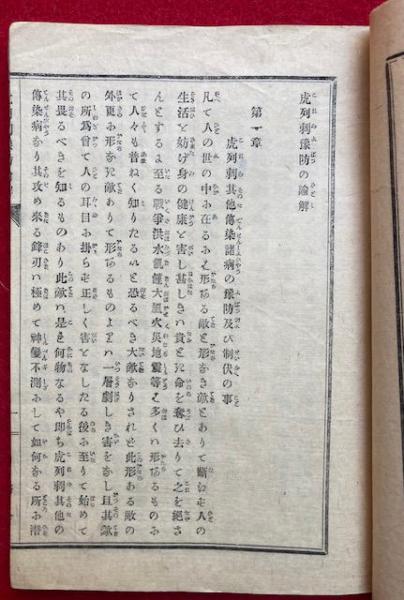 虎列刺豫防の諭解
第一章
虎列刺其他傳染諸病の豫防及び制伏の事
凡て人の世の中に在るに形ある敵と形なき敵とありて斷にも人の
生活を妨げ身の健康を害し甚しきハ貴とき命を奪ひ去りて之を絕さ
んとするに至る戰爭洪水飢饉大風火災地震等ハ多くハ形あるものに
て人々も普ねく知りたる恐るべき大敵なりされど此形ある敵の
外更に形なき敵ありて形あるものよりハ一層劇しき害をなし且其敵
の所爲曾て人の耳目に掛らず正しく害をなしたる後に至りて始めて
其畏るべきを知るものあり此敵ハ是を何物なるや即ち虎列刺其他の
傳染病なり其攻め來る鋒刃ハ極めて神變不測にして如何なる所に潛